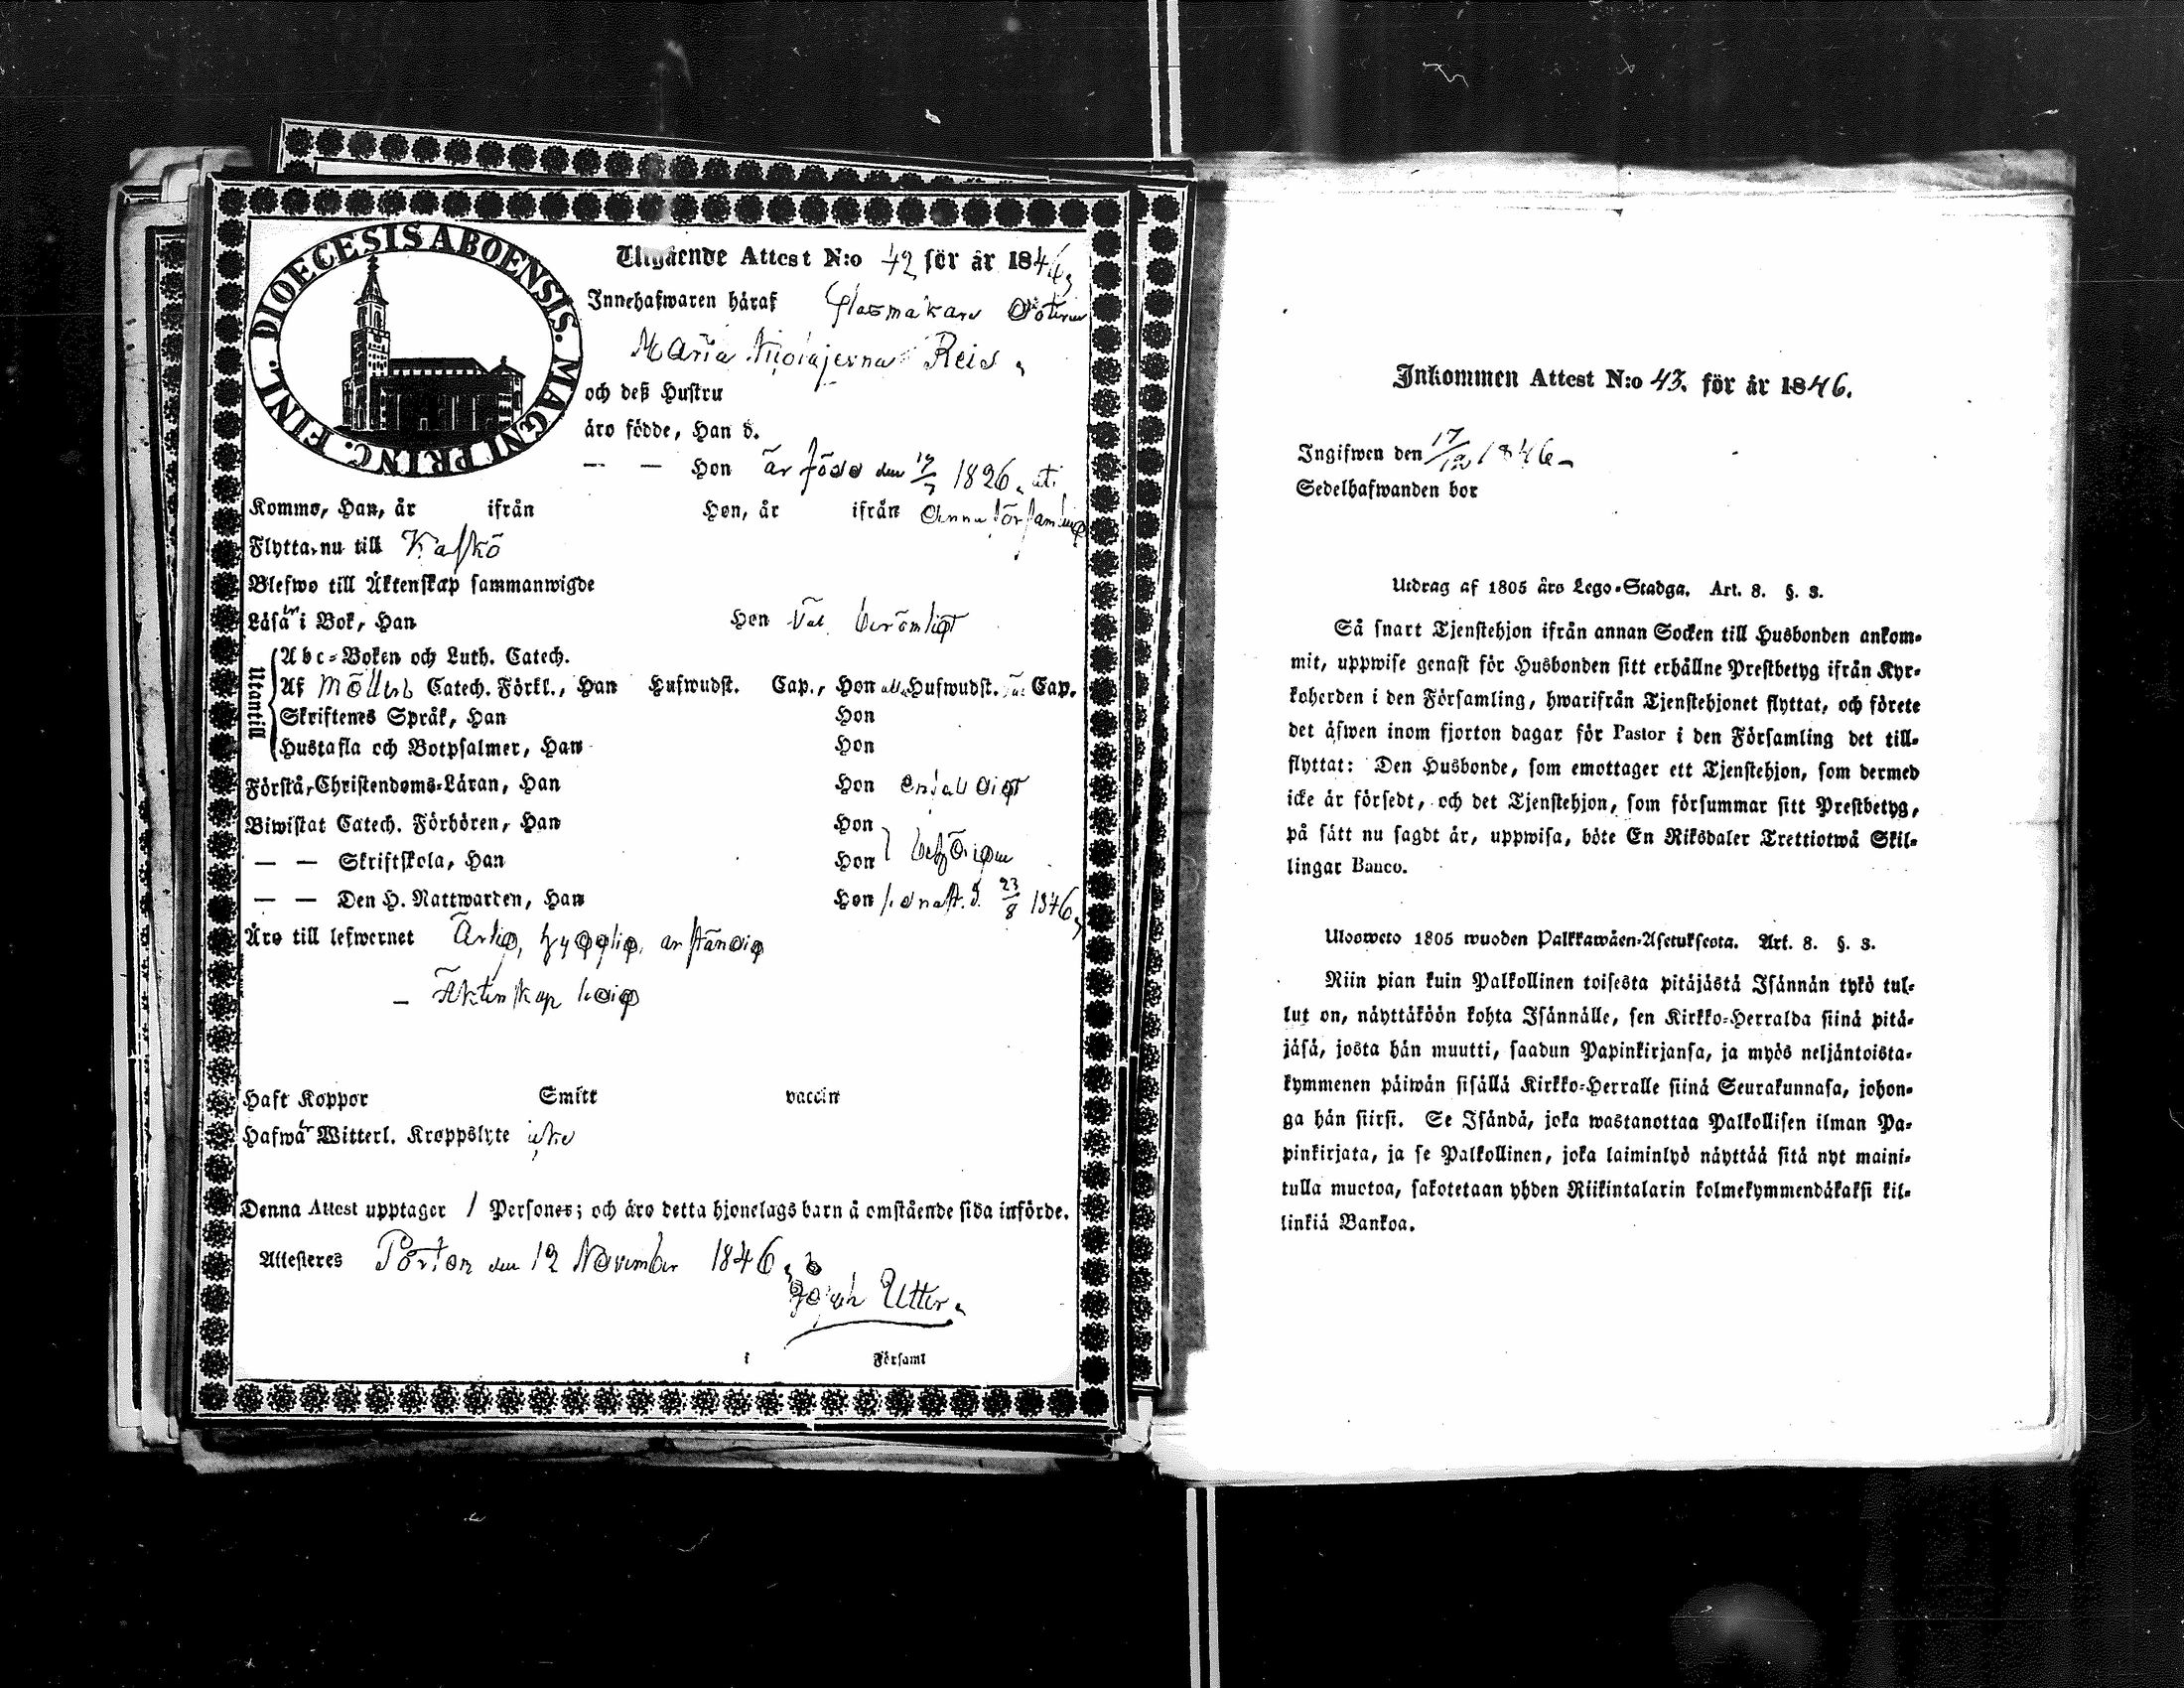 DIOECESIS ABOENSIS. MAGNI PRINC. FINL.
Utgående Attest N:o 42 för år 1846,
Innehafwaren häraf Glasmakare Dottren
Maria Nicolajevna Reis.
och deß Hustru
äro födde, Han d.
— — Hon är född den 17/7 1826, uti
Kommo, Han, år ifrån Hon, år ifrån denna församling
Flytta, nu till Kaskö
Blefwo till Äktenskap sammanwigde
Läsa i Bok, Han Hon Väl berömligt
Utantill
Abc-Boken och Luth. Catech.
Af Möllers Catech. Förkl., Han Hufwudst. Cap., Hon alla Hufwudst. Cap.
Skriftenes Språk, Han Hon
Hustafla och Botpsalmer, Han Hon
Förstå, Christendoms-Läran, Han Hon enfaldigt
Biwistat Catech. Förhören, Han Hon
— — Skriftskola, Han Hon behörigen
— — Den H. Nattwarden, Han Hon sednast d. 23/8 1846,
Äro till lefwernet Ärlig, hygglig, anständig
— Äktenskap ledig
Haft Koppor Smitt vaccin
Hafwa Witterl. Kroppslyte icke
Denna Attest upptager 1 Persones; och äro detta hjonelags barn å omstående sida införde.
Attesteres Pörtom den 12 November 1846,
Joseph Utter.
i Församl
Inkommen Attest N:o 43. för år 1846.
Ingifwen den 17/12 1846
Sedelhafwanden bor
Utdrag af 1805 års Lego-Stadga. Art. 8. §. 3.
Så snart Tjenstehjon ifrån annan Socken till Husbonden ankom-
mit, uppwise genast för Husbonden sitt erhållne Prestbetyg ifrån Kyr-
koherden i den Församling, hwarifrån Tjenstehjonet flyttat, och förete
det äfwen inom fjorton dagar för Pastor i den Församling det till-
flyttat: Den Husbonde, som emottager ett Tjenstehjon, som dermed
icke är försedt, och det Tjenstehjon, som försummar sitt Prestbetyg,
på sätt nu sagdt är, uppwisa, böte En Riksdaler Trettiotwå Skil-
lingar Banco.
Ulosweto 1805 wuoden Palkkawäen-Asetuksesta. Art. 8. §. 3.
Niin pian kuin Palkollinen toisesta pitäjästä Isännän tykö tul-
lut on, näyttäköön kohta Isännälle, sen Kirkko-Herralda siinä pitä-
jäsä, josta hän muutti, saadun Papinkirjansa, ja myös neljäntoista-
kymmenen päiwän sisällä Kirkko-Herralle siinä Seurakunnasa, johon-
ga hän siirsi. Se Isändä, joka wastanottaa Palkollisen ilman Pa-
pinkirjata, ja se Palkollinen, joka laiminlyö näyttää sitä nyt maini-
tulla muotoa, sakotetaan yhden Riikintalarin kolmekymmendäkaksi kil-
linkiä Bankoa.